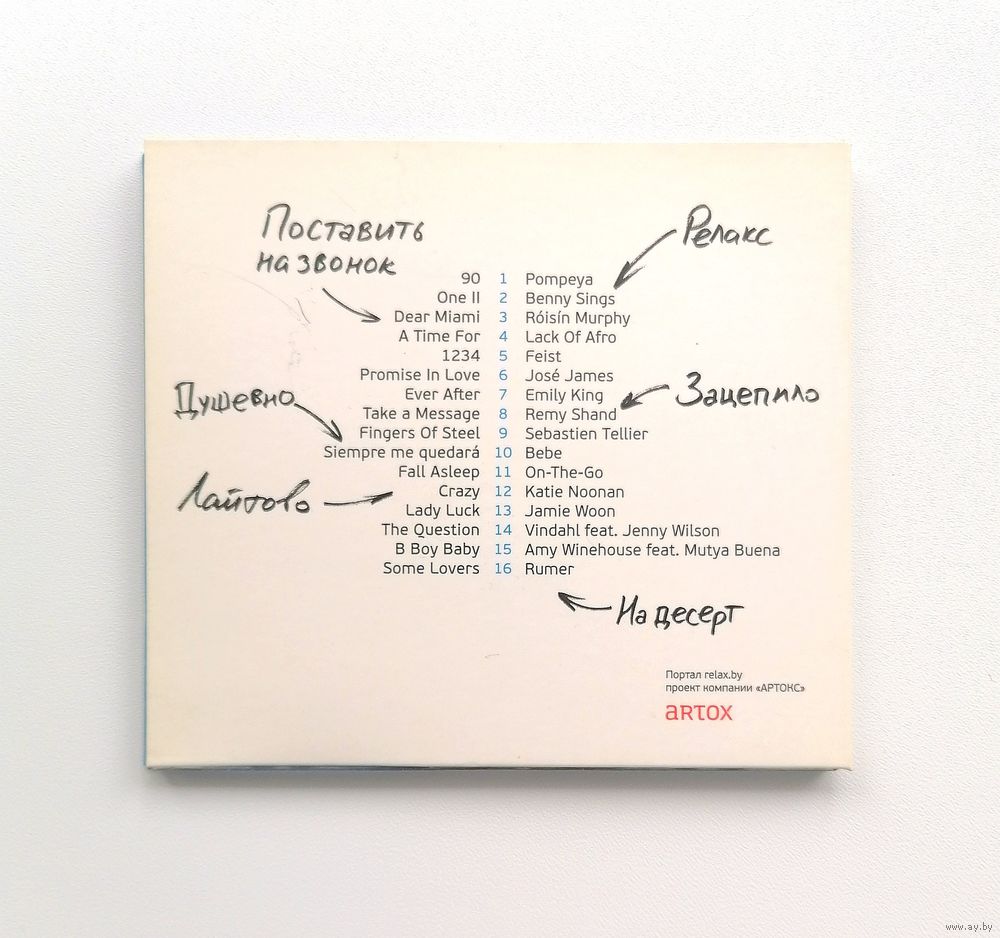 Поставить
на звонок
Релакс
90 1 Pompeya
One II 2 Benny Sings
Dear Miami 3 Róisín Murphy
A Time For 4 Lack Of Afro
1234 5 Feist
Promise In Love 6 José James
Ever After 7 Emily King
Зацепило
Душевно
Take a Message 8 Remy Shand
Fingers Of Steel 9 Sebastien Tellier
Siempre me quedará 10 Bebe
Fall Asleep 11 On-The-Go
Crazy 12 Katie Noonan
Лайтово
Lady Luck 13 Jamie Woon
The Question 14 Vindahl feat. Jenny Wilson
B Boy Baby 15 Amy Winehouse feat. Mutya Buena
Some Lovers 16 Rumer
На десерт
Портал relax.by
проект компании «АРТОКС»
aRTOX
www.ay.by